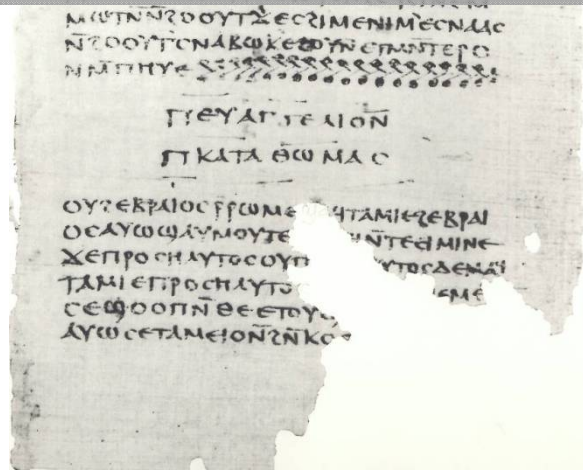 ⲙⲱⲧⲛ̄ⲛ̄ϩⲟⲟⲩⲧϫⲉⲥϩⲓⲙⲉⲛⲓⲙⲉⲥⲛⲁⲁⲥ
ⲛ̄ϩⲟⲟⲩⲧⲥⲛⲁⲃⲱⲕⲉϩⲟⲩⲛⲉⲧⲙⲛ̄ⲧⲉⲣⲟ
ⲛⲙ̄ⲡⲏⲩⲉ
ⲡⲉⲩⲁⲅⲅⲉⲗⲓⲟⲛ
ⲡⲕⲁⲧⲁ ⲑⲱⲙⲁⲥ
ⲟⲩϩⲉⲃⲣⲁⲓⲟⲥⲣ̄ⲣⲱⲙⲉ ϥⲧⲁⲙⲓⲉϩⲉⲃⲣⲁⲓ
ⲟⲥⲁⲩⲱϣⲁⲩⲙⲟⲩⲧⲉ ϩⲛ̄ⲧⲉⲉⲓⲙⲓⲛⲉ
ϫⲉⲡⲣⲟⲥⲏⲗⲩⲧⲟⲥⲟⲩⲡ ⲗⲩⲧⲟⲥⲇⲉⲙⲁϥ
ⲧⲁⲙⲓⲉⲡⲣⲟⲥⲏⲗⲩⲧⲟ ⲉⲙⲉ
ⲥⲉϣⲟⲟⲡⲛ̄ⲑⲉⲉⲧⲟⲩ
ⲁⲩⲱⲥⲉⲧⲁⲙⲉⲓⲟⲛ̄ϩⲛ̄ⲕⲟ